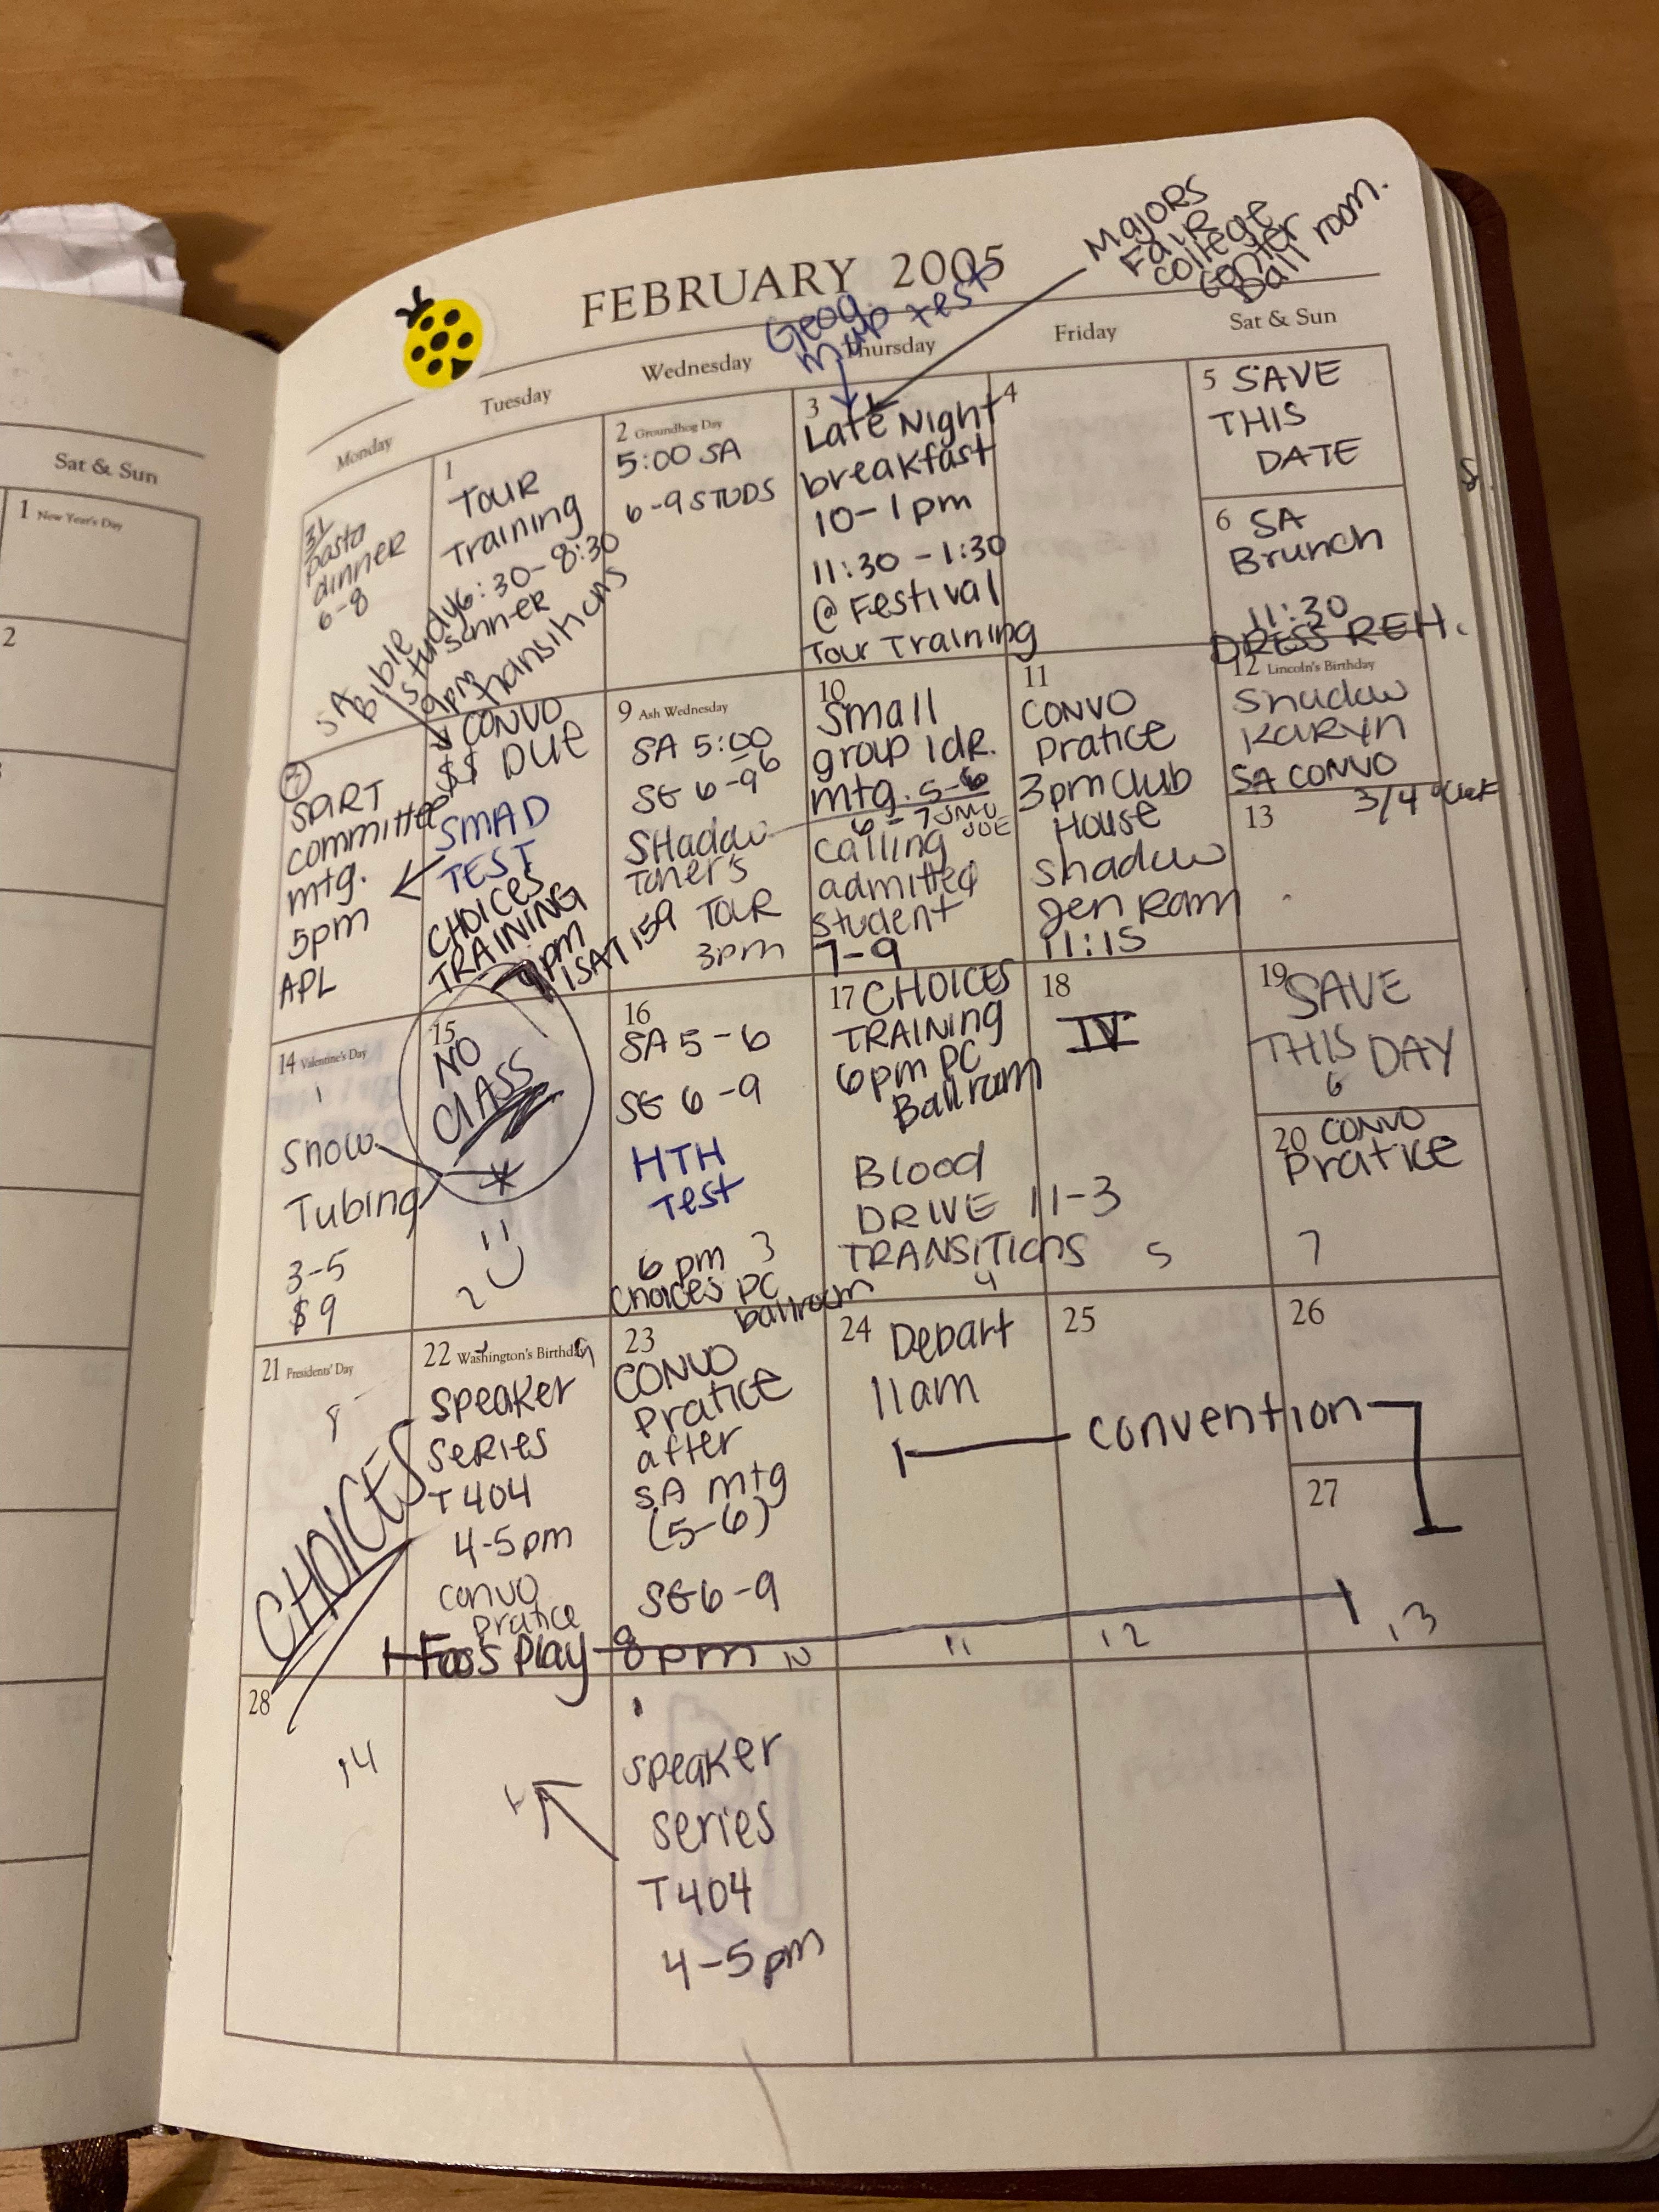 Sat & Sun
1 New Year's Day
2
FEBRUARY 2005
Majors
Fair
College
Center
Ball room.
Geog.
map test
Monday
Tuesday
Wednesday
Thursday
Friday
Sat & Sun
31
pasta
dinner
6-8
SA
Bible
study
1
Tour
Training
6:30-8:30
9pm
transitions
2 Groundhog Day
5:00 SA
6-9 STUDS
3
Late Night
breakfast
10-1pm
11:30-1:30
@ Festival
Tour Training
4
5 SAVE
THIS
DATE
6 SA
Brunch
11:30
DRESS REH.
7
SPIRT
committee
mtg.
5pm
APL
CONVO
$$ DUE
SMAD
TEST
CHOICES
TRAINING
9pm
9 Ash Wednesday
SA 5:00
SG 6-9
SHadow
Toner's
ISAT 159 TOUR
3pm
10
Small
group ldr.
mtg. 5-6
6-7 JMU
calling
admitted
student
7-9
11
CONVO
pratice
3pm Club
House
shadow
Jen Ram
11:15
12 Lincoln's Birthday
Shadow
Karyn
SA CONVO
3/4
13
14 Valentine's Day
1
Snow
Tubing
3-5
$9
15
NO
ClASS
2
16
SA 5-6
SG 6-9
HTH
Test
6pm 3
Choices PC
ballroom
17 CHOICES
TRAINING
6pm PC
Ballroom
Blood
DRIVE 11-3
TRANSITIONS
4
18
IV
5
19 SAVE
THIS DAY
6
20 CONVO
Pratice
7
21 Presidents' Day
8
CHOICES
22 Washington's Birthday
9
Speaker
SERIES
T404
4-5pm
convo
pratice
23
CONVO
pratice
after
SA mtg
(5-6)
SG 6-9
24 Depart
11am
25
26
convention
27
Foo's Play 8pm
10
11
12
13
28
14
speaker
series
T404
4-5pm